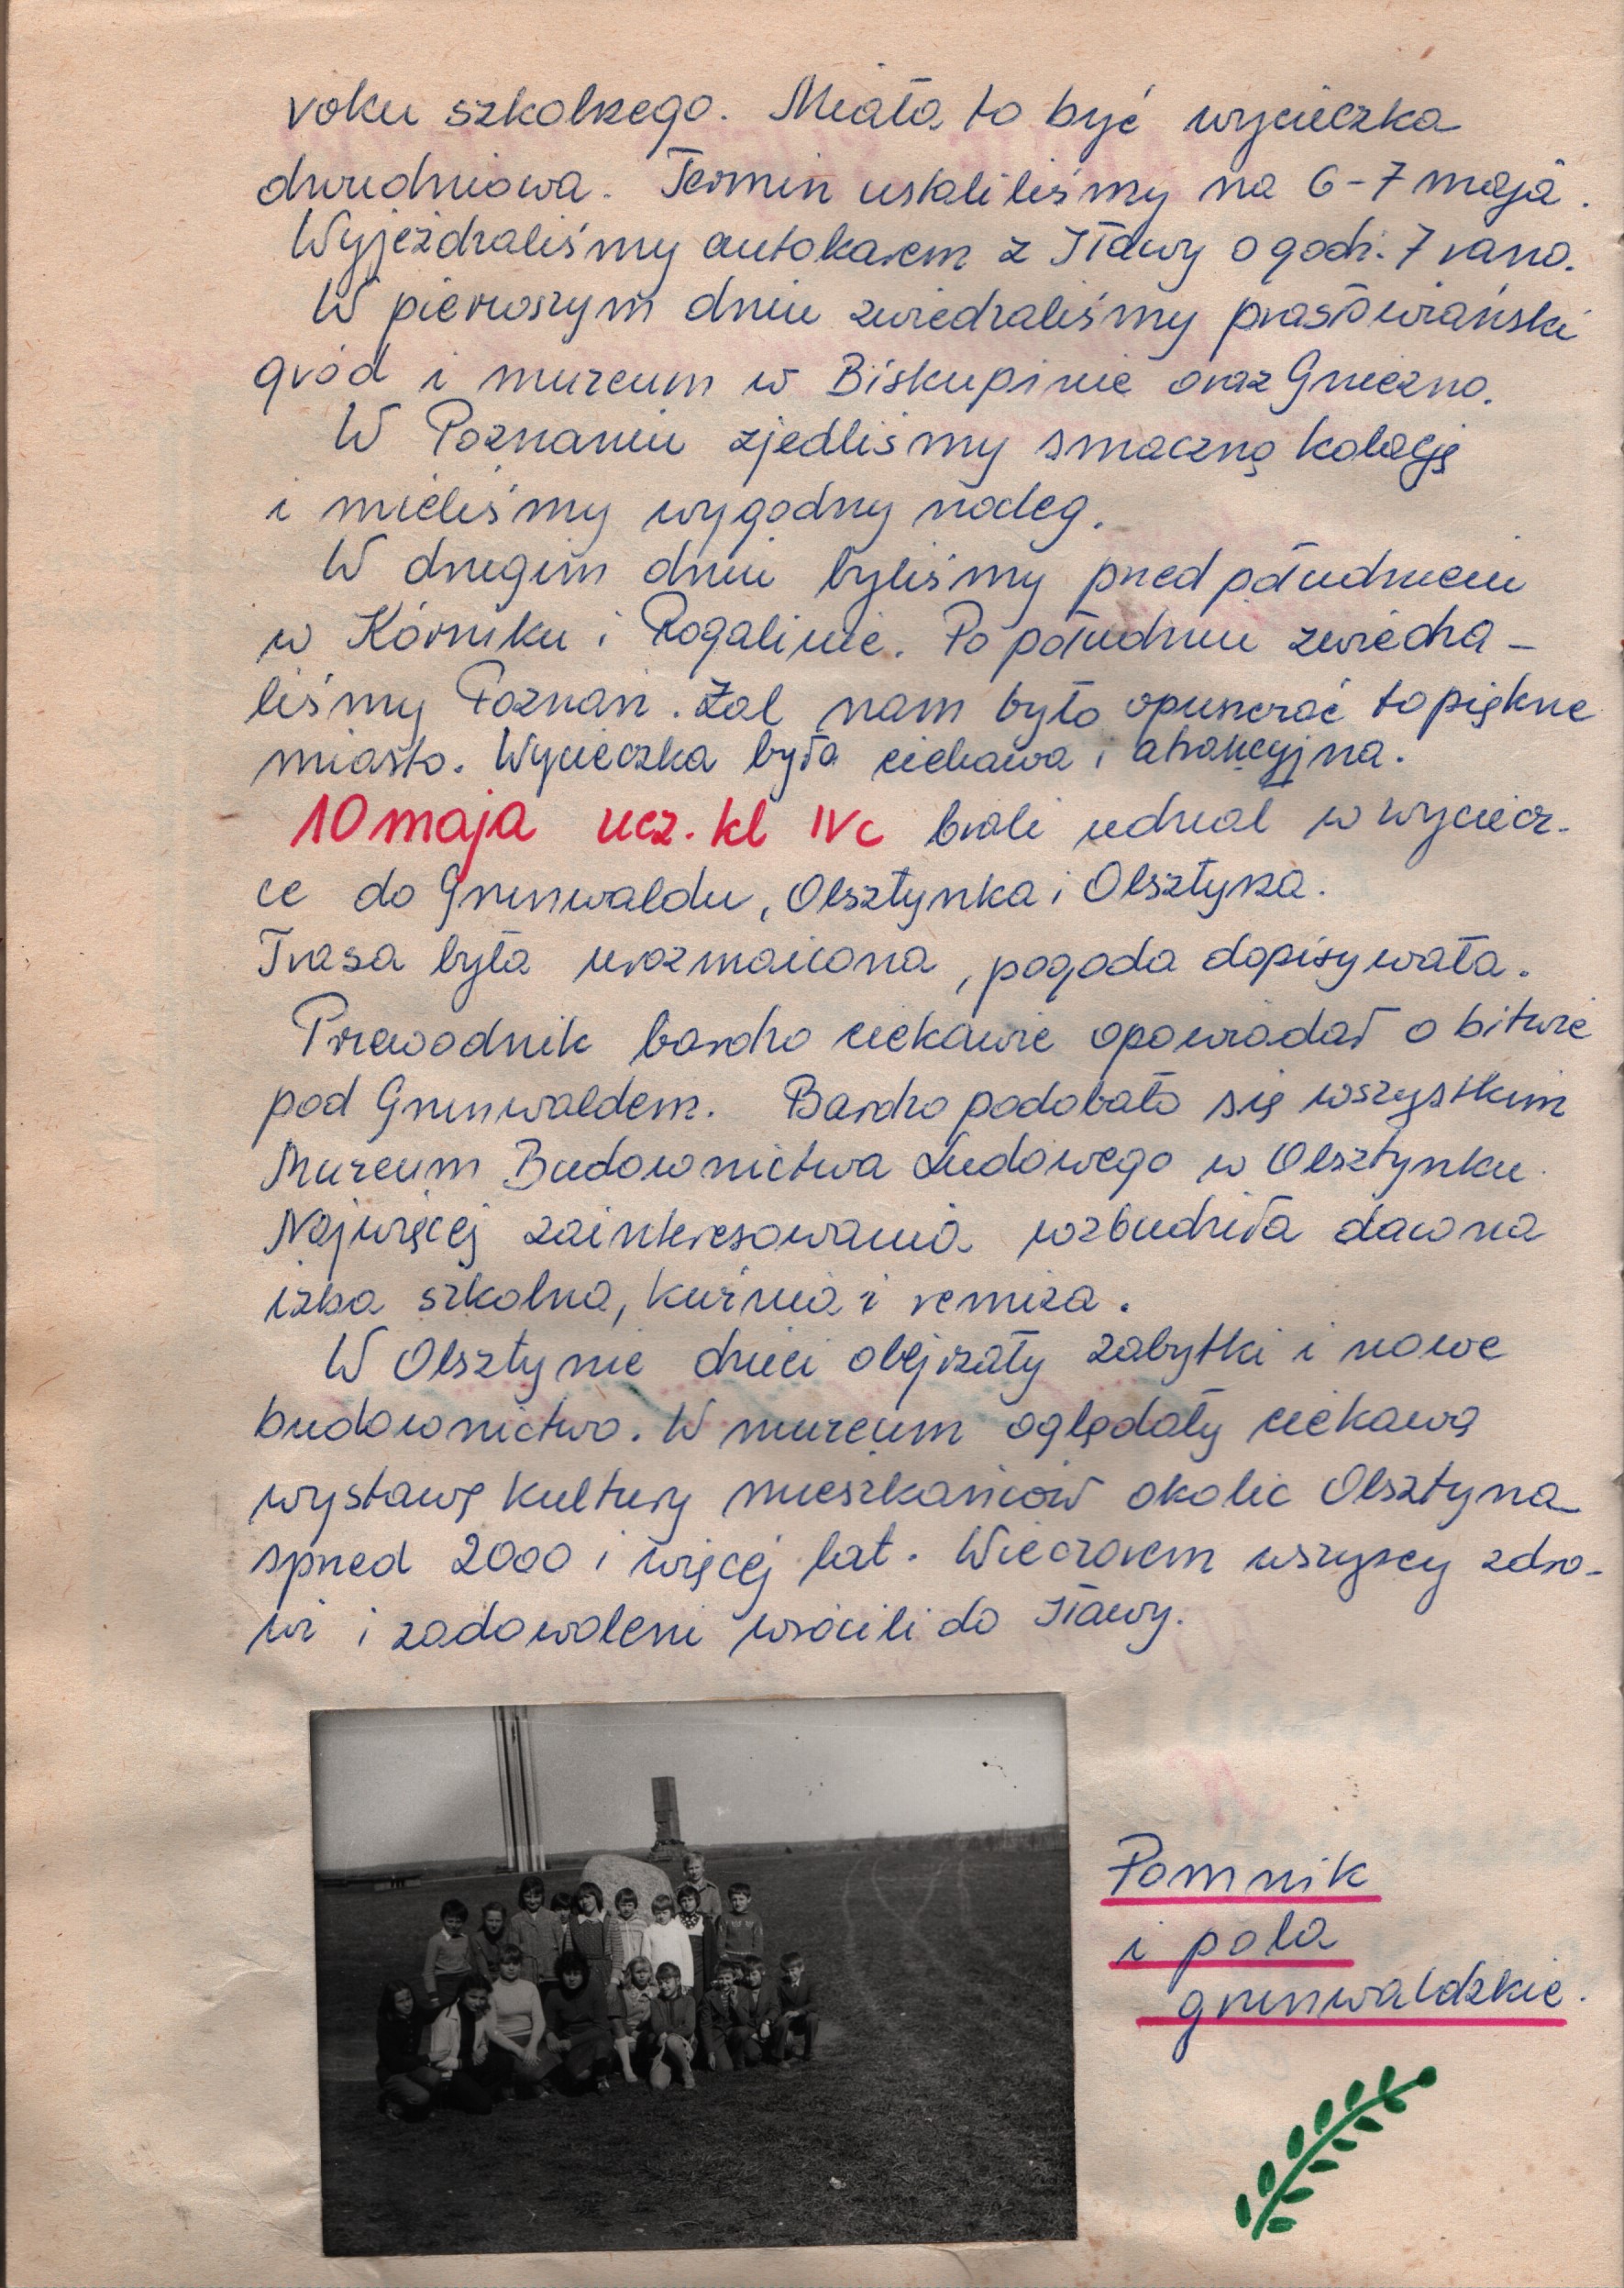 roku szkolnego. Miała to być wycieczka
dwudniowa. Termin ustaliliśmy na 6-7 maja.
Wyjeżdżaliśmy autokarem z Iławy o godz. 7 rano.
W pierwszym dniu zwiedzaliśmy prasłowiański
gród i muzeum w Biskupinie oraz Gniezno.
W Poznaniu zjedliśmy smaczną kolację
i mieliśmy wygodny nocleg.
W drugim dniu byliśmy przed południem
w Kórniku i Rogalinie. Po południu zwiedza-
liśmy Poznań. Żal nam było opuszczać to piękne
miasto. Wycieczka była ciekawa i atrakcyjna.
10 maja ucz. kl IVc brali udział w wyciecz-
ce do Grunwaldu, Olsztynka i Olsztyna.
Trasa była urozmaicona, pogoda dopisywała.
Przewodnik bardzo ciekawie opowiadał o bitwie
pod Grunwaldem. Bardzo podobało się wszystkim
Muzeum Budownictwa Ludowego w Olsztynku.
Najwięcej zainteresowania wzbudziła dawna
izba szkolna, kuźnia i remiza.
W Olsztynie dzieci obejrzały zabytki i nowe
budownictwo. W muzeum oglądały ciekawą
wystawę kultury mieszkańców okolic Olsztyna
sprzed 2000 i więcej lat. Wieczorem wszyscy zdro-
wi i zadowoleni wrócili do Iławy.
Pomnik
i pola
grunwaldzkie.